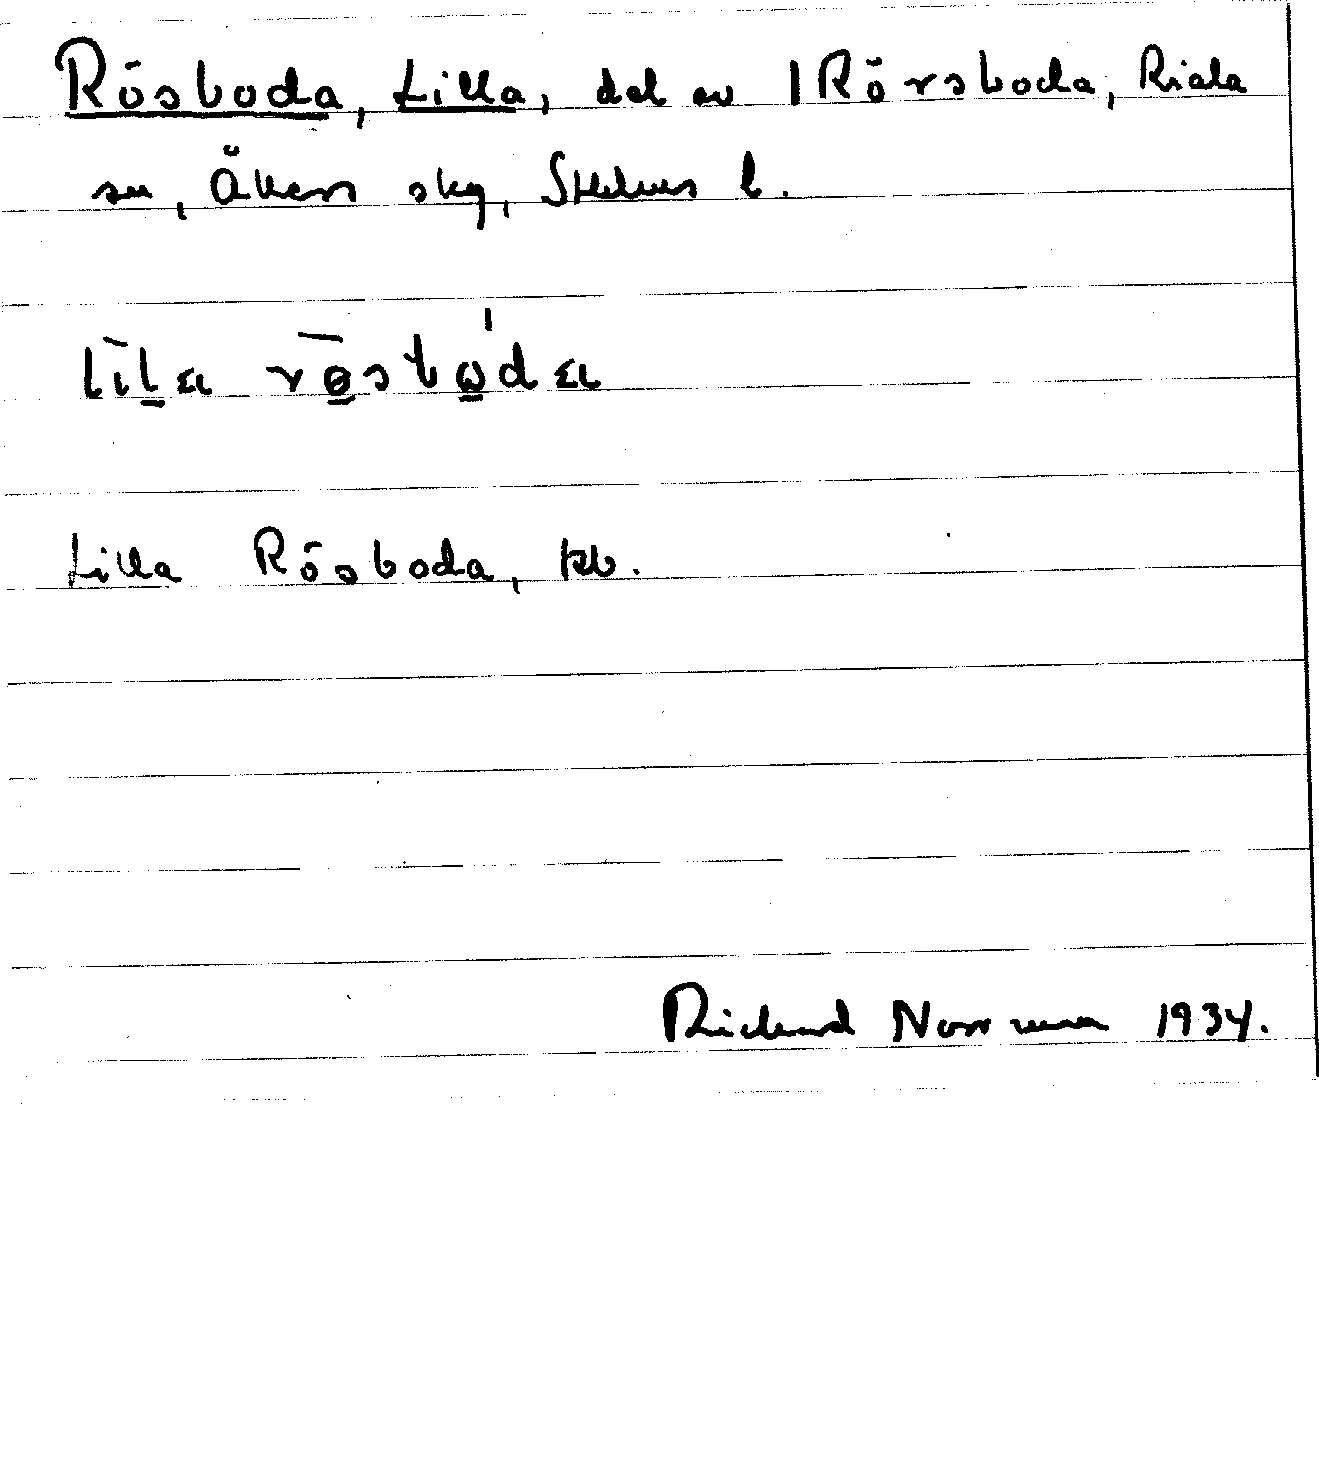 Rösboda, Lilla, del av 1 Rörsboda, Riala
sn, Åkers skg, Sthlms l.
Lilla Rösboda, kb.
Richard Norrman 1934.